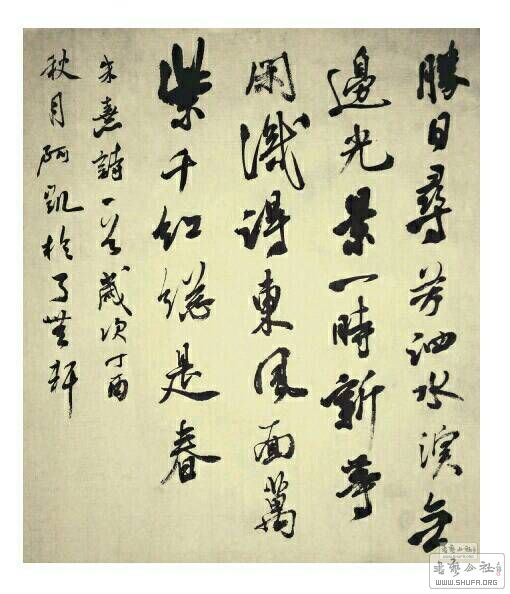 勝日尋芳泗水濱無
邊光景一時新等
閑識得東風面萬
紫千紅總是春
朱熹詩一首歲次丁酉
秋月阿凱於了無軒
書藝公社
書藝公社
WWW.SHUFA.ORG